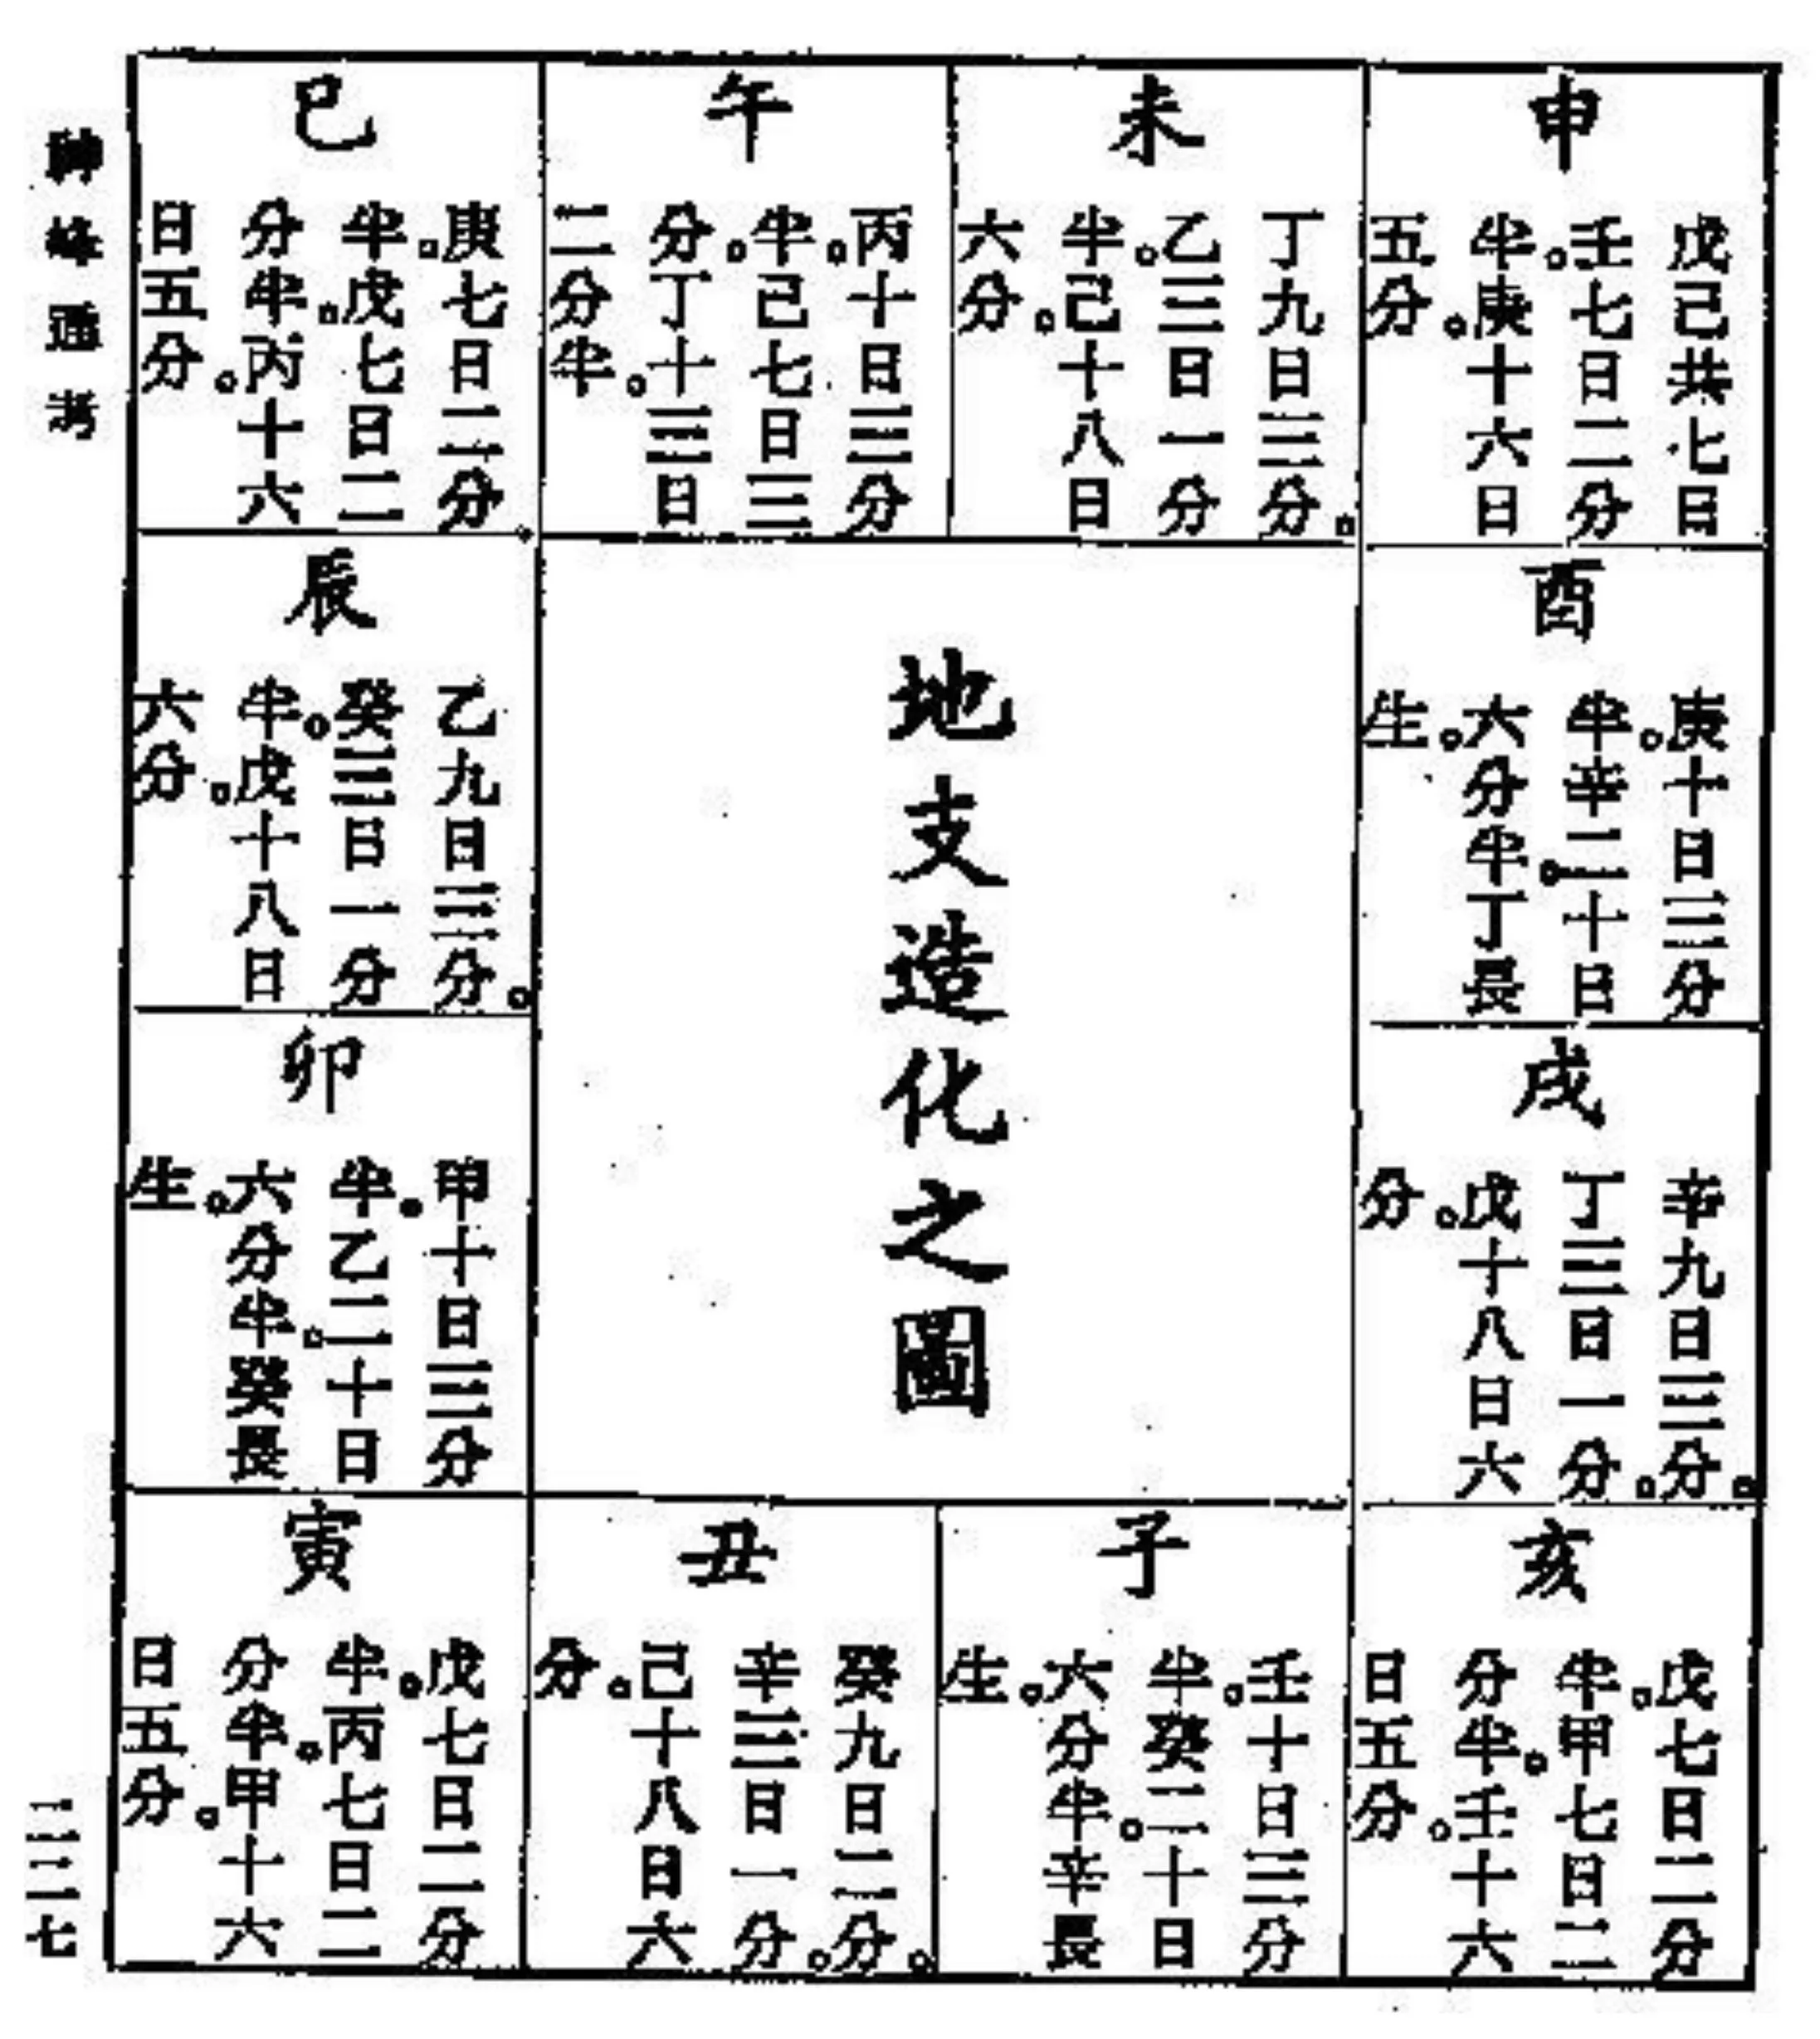 神峰通考
地支造化之圖
申
戊己共七日
壬七日二分
半。庚十六日
五分。
未
丁九日三分。
乙三日一分
半。己十八日
六分。
午
丙十日三分
半。己七日三
分。丁十三日
二分半。
巳
庚七日二分
半。戊七日二
分半。丙十六
日五分。
酉
庚十日三分
半。辛二十日
六分半。丁長
生。
辰
乙九日三分。
癸三日一分
半。戊十八日
六分。
戌
辛九日三分。
丁三日一分。
戊十八日六
分。
卯
甲十日三分
半。乙二十日
六分半。癸長
生。
亥
戊七日二分
半。甲七日二
分半。壬十六
日五分。
子
壬十日三分
半。癸二十日
六分半。辛長
生。
丑
癸九日二分。
辛三日一分。
己十八日六
分。
寅
戊七日二分
半。丙七日二
分半。甲十六
日五分。